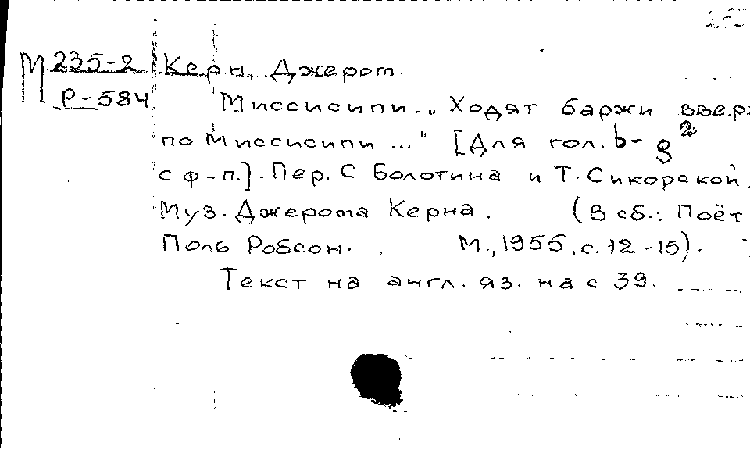 М 235-2 Керн, Джером
Р-584
Миссисипи. „Ходят баржи вверх
по Миссисипи ..." [Для гол. b-g²
с ф-п.]. Пер. С Болотина и Т. Сикорской.
Муз. Джерома Керна. (В сб.: Поёт
Поль Робсон. М., 1955, с. 12-15).
Текст на англ. яз. на с 39.